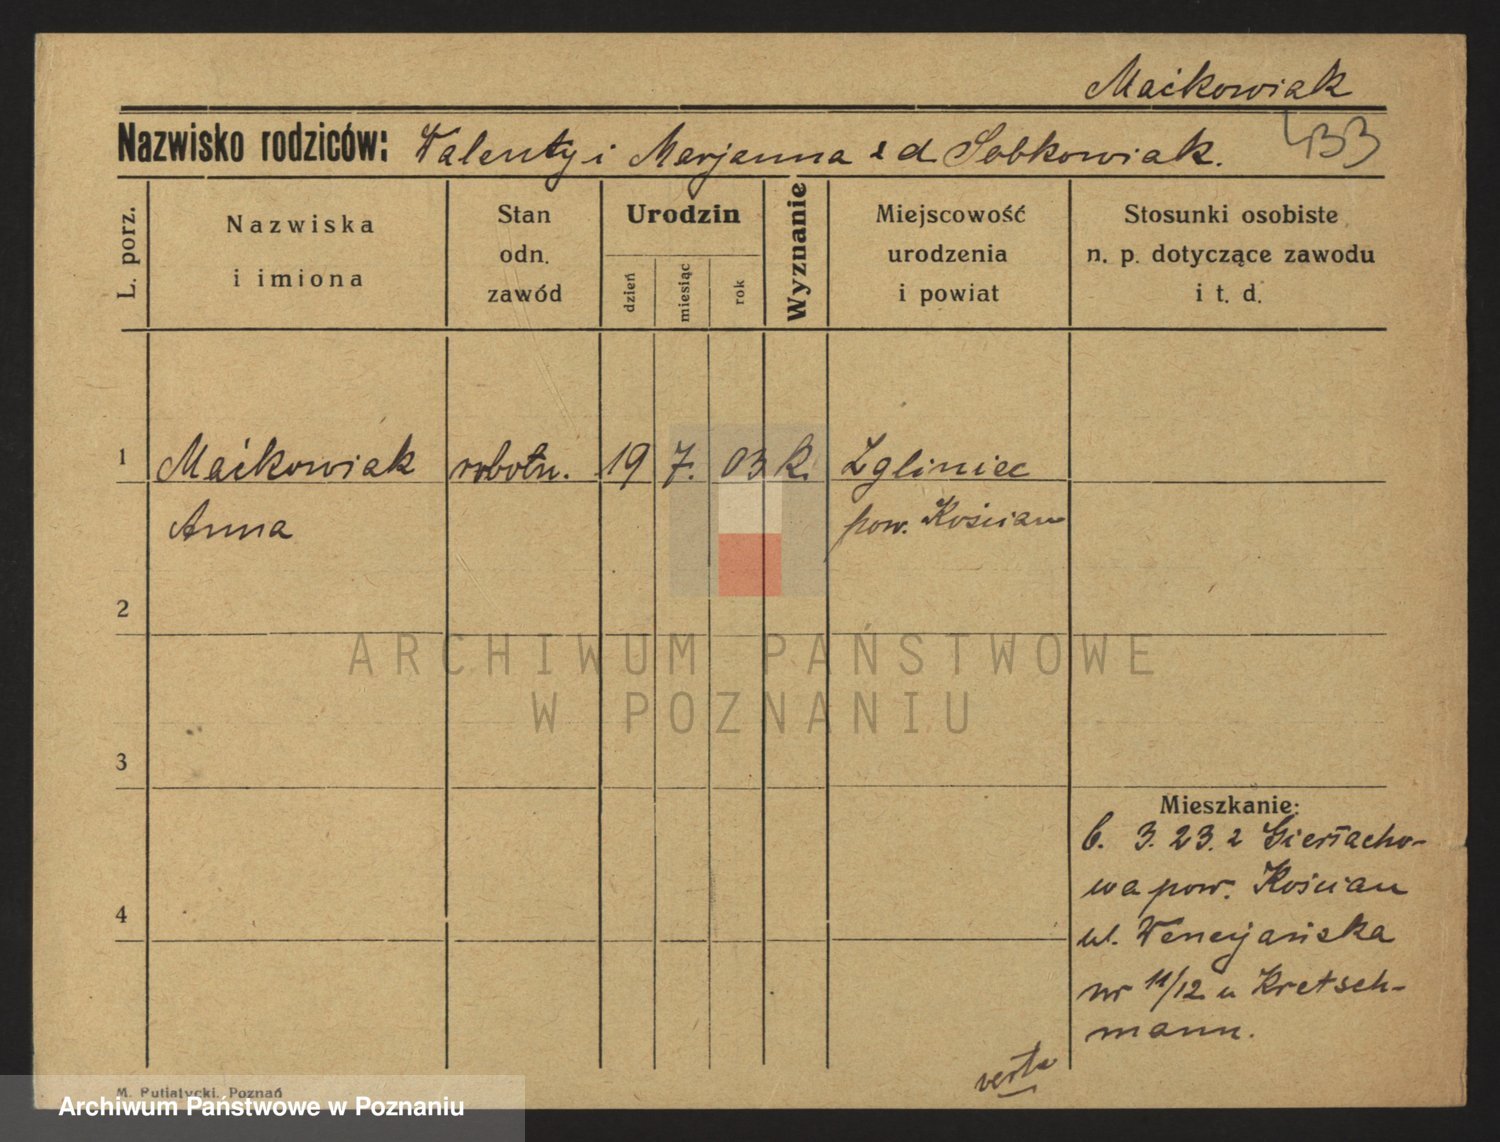 Maćkowiak
Nazwisko rodziców: Walenty i Marjanna z d. Sobkowiak.
433
L. porz.
Nazwiska
i imiona
Stan
odn.
zawód
Urodzin
dzień
miesiąc
rok
Wyznanie
Miejscowość
urodzenia
i powiat
Stosunki osobiste
n. p. dotyczące zawodu
i t. d.
1 Maćkowiak robotn. 19 7. 03 k. Zgliniec
Anna pow. Kościan
2
ARCHIWUM PAŃSTWOWE
W POZNANIU
3
Mieszkanie:
6. 3. 23. z Gierłacho-
wa pow. Kościan
4
ul. Wenecjańska
nr 11/12 u Kretsch-
mann.
verte
M. Putiatycki, Poznań
Archiwum Państwowe w Poznaniu